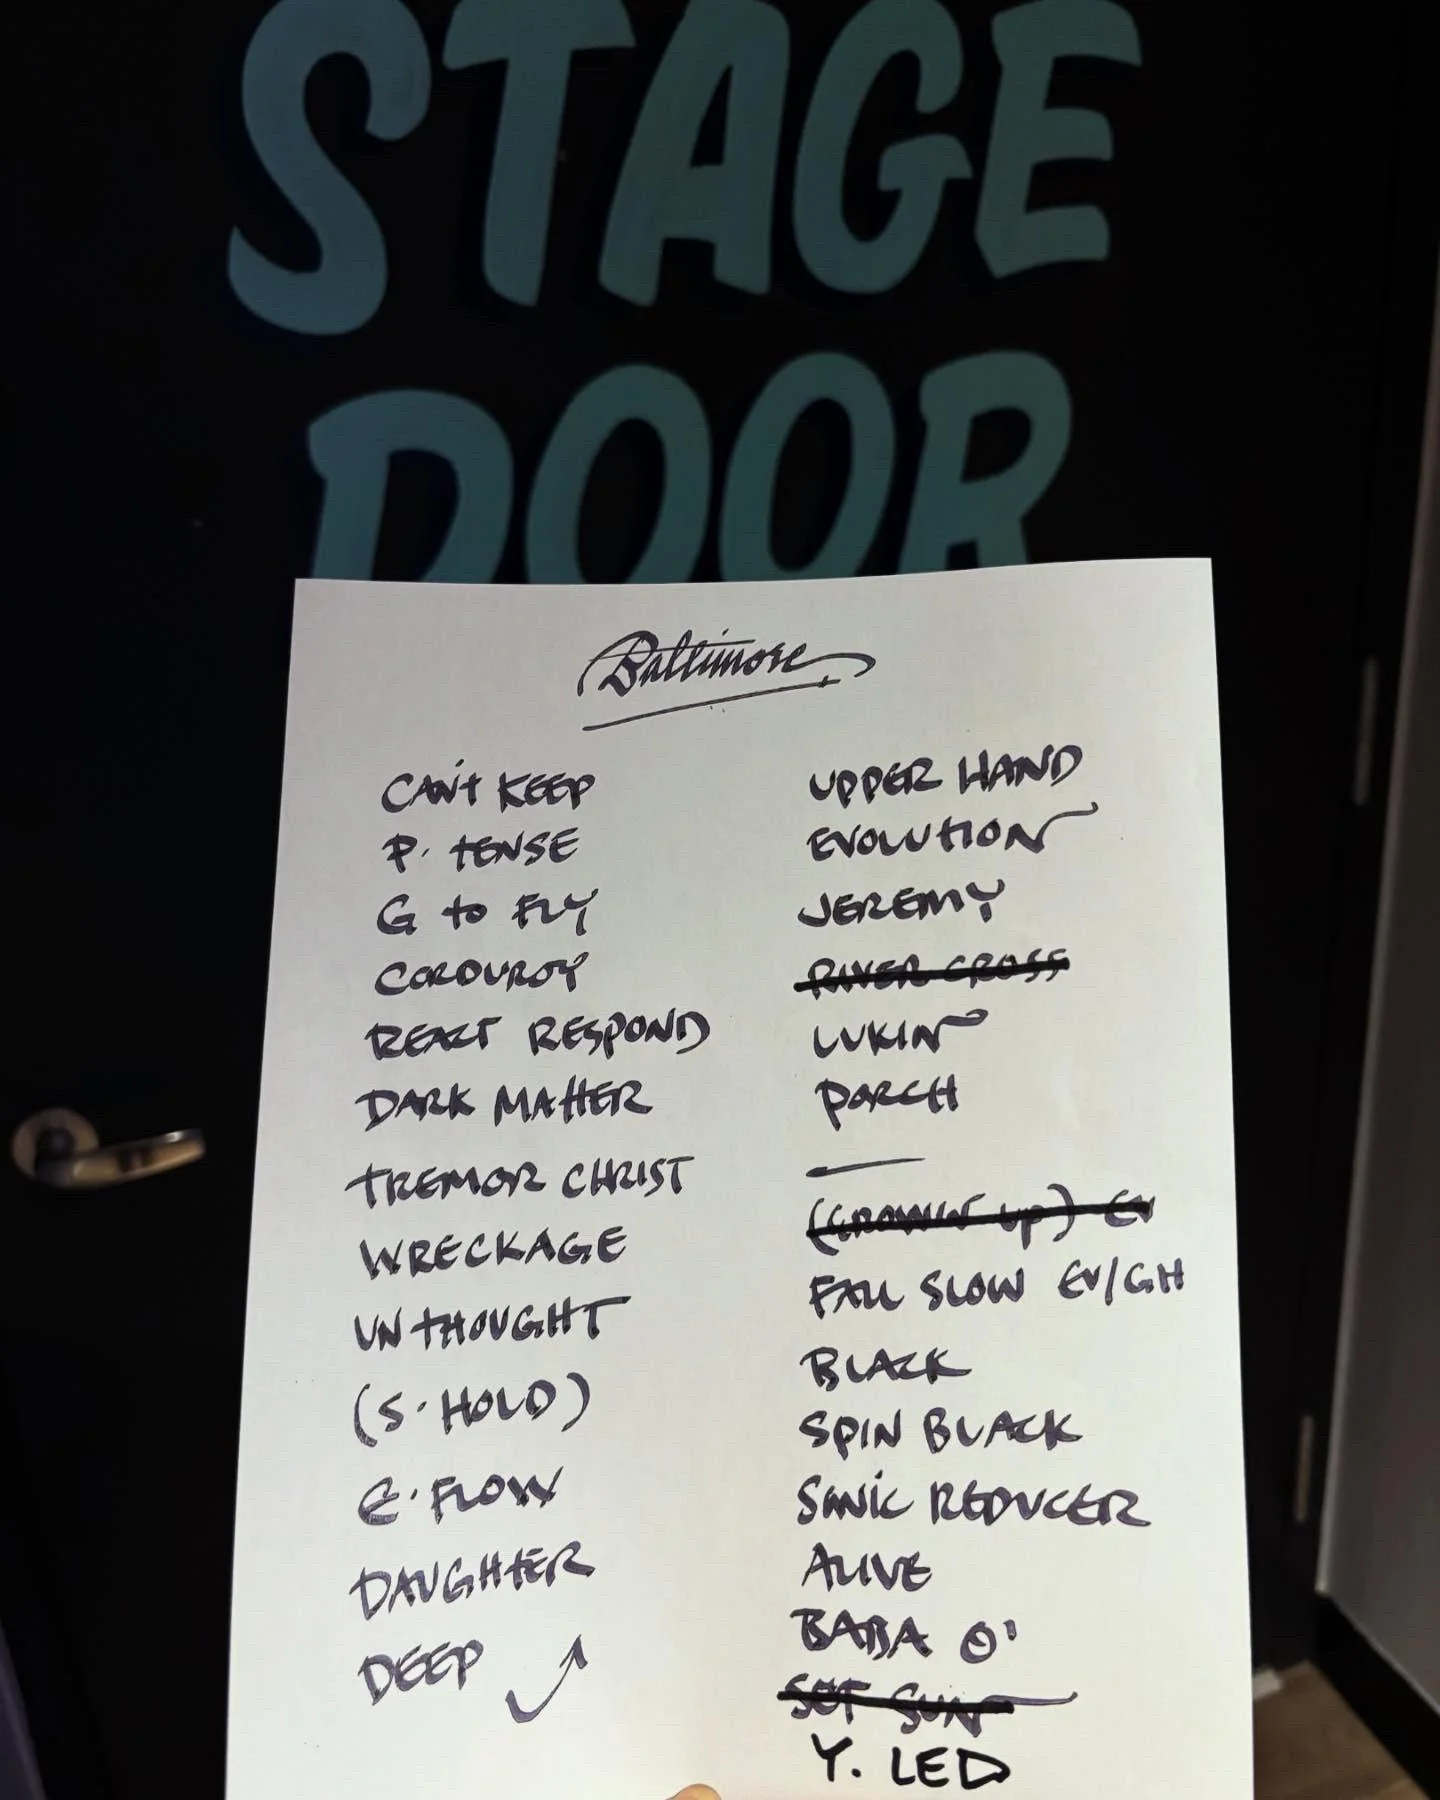 STAGE
DOOR
Baltimore
CAN'T KEEP
P. TENSE
G to FLY
CORDUROY
REACT RESPOND
DARK MATTER
TREMOR CHRIST
WRECKAGE
UNTHOUGHT
(S. HOLD)
E. FLOW
DAUGHTER
DEEP
UPPER HAND
EVOLUTION
JEREMY
RIVER CROSS
LUKIN
PORCH
(GROWIN UP) EV
FALL SLOW EV/GH
BLACK
SPIN BLACK
SONIC REDUCER
ALIVE
BABA O'
SET SUN
Y. LED